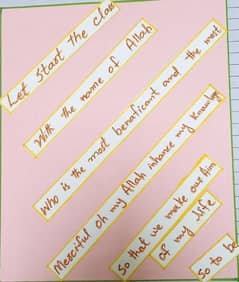 Let Start the clas
With the name of Allah
who is the most benaficant and the most
Merciful oh my Allah inhance my knowlg
so that we make our Aim
of my life
So to be